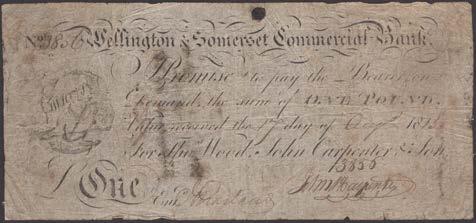 No 3856 Wellington & Somerset Commercial Bank.
I Promise to pay the Bearer, on
Demand, the sum of ONE POUND.
Value received the day of 181
For Thos. Wood, John Carpenter & Son.
3856
£ One
Entd. John Carpenter